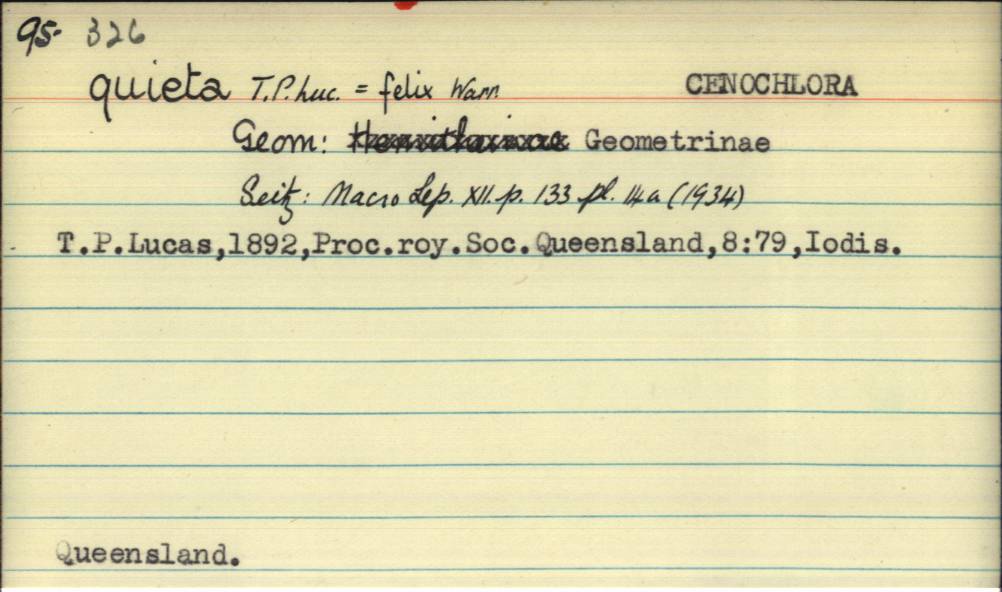 95. 326
quieta T.P. Luc. = felix Warr. CENOCHLORA
Geom: Hemitheinae Geometrinae
Seitz: Macro Lep. XII. p. 133 pl. 14a (1934)
T.P.Lucas,1892,Proc.roy.Soc.Queensland,8:79,Iodis.
Queensland.